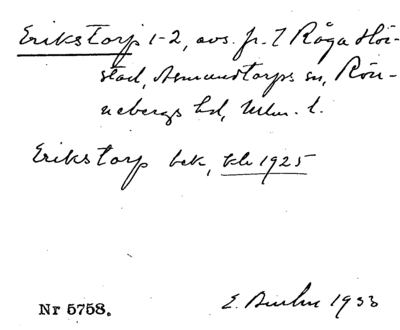 Erikstorp 1-2, avs. fr. 7 Råga Hör-
stad, Asmundtorps sn, Rön-
nebergs hd, Mlm. l.
Erikstorp bek, kb 1925
Nr 5758.
E. 1933